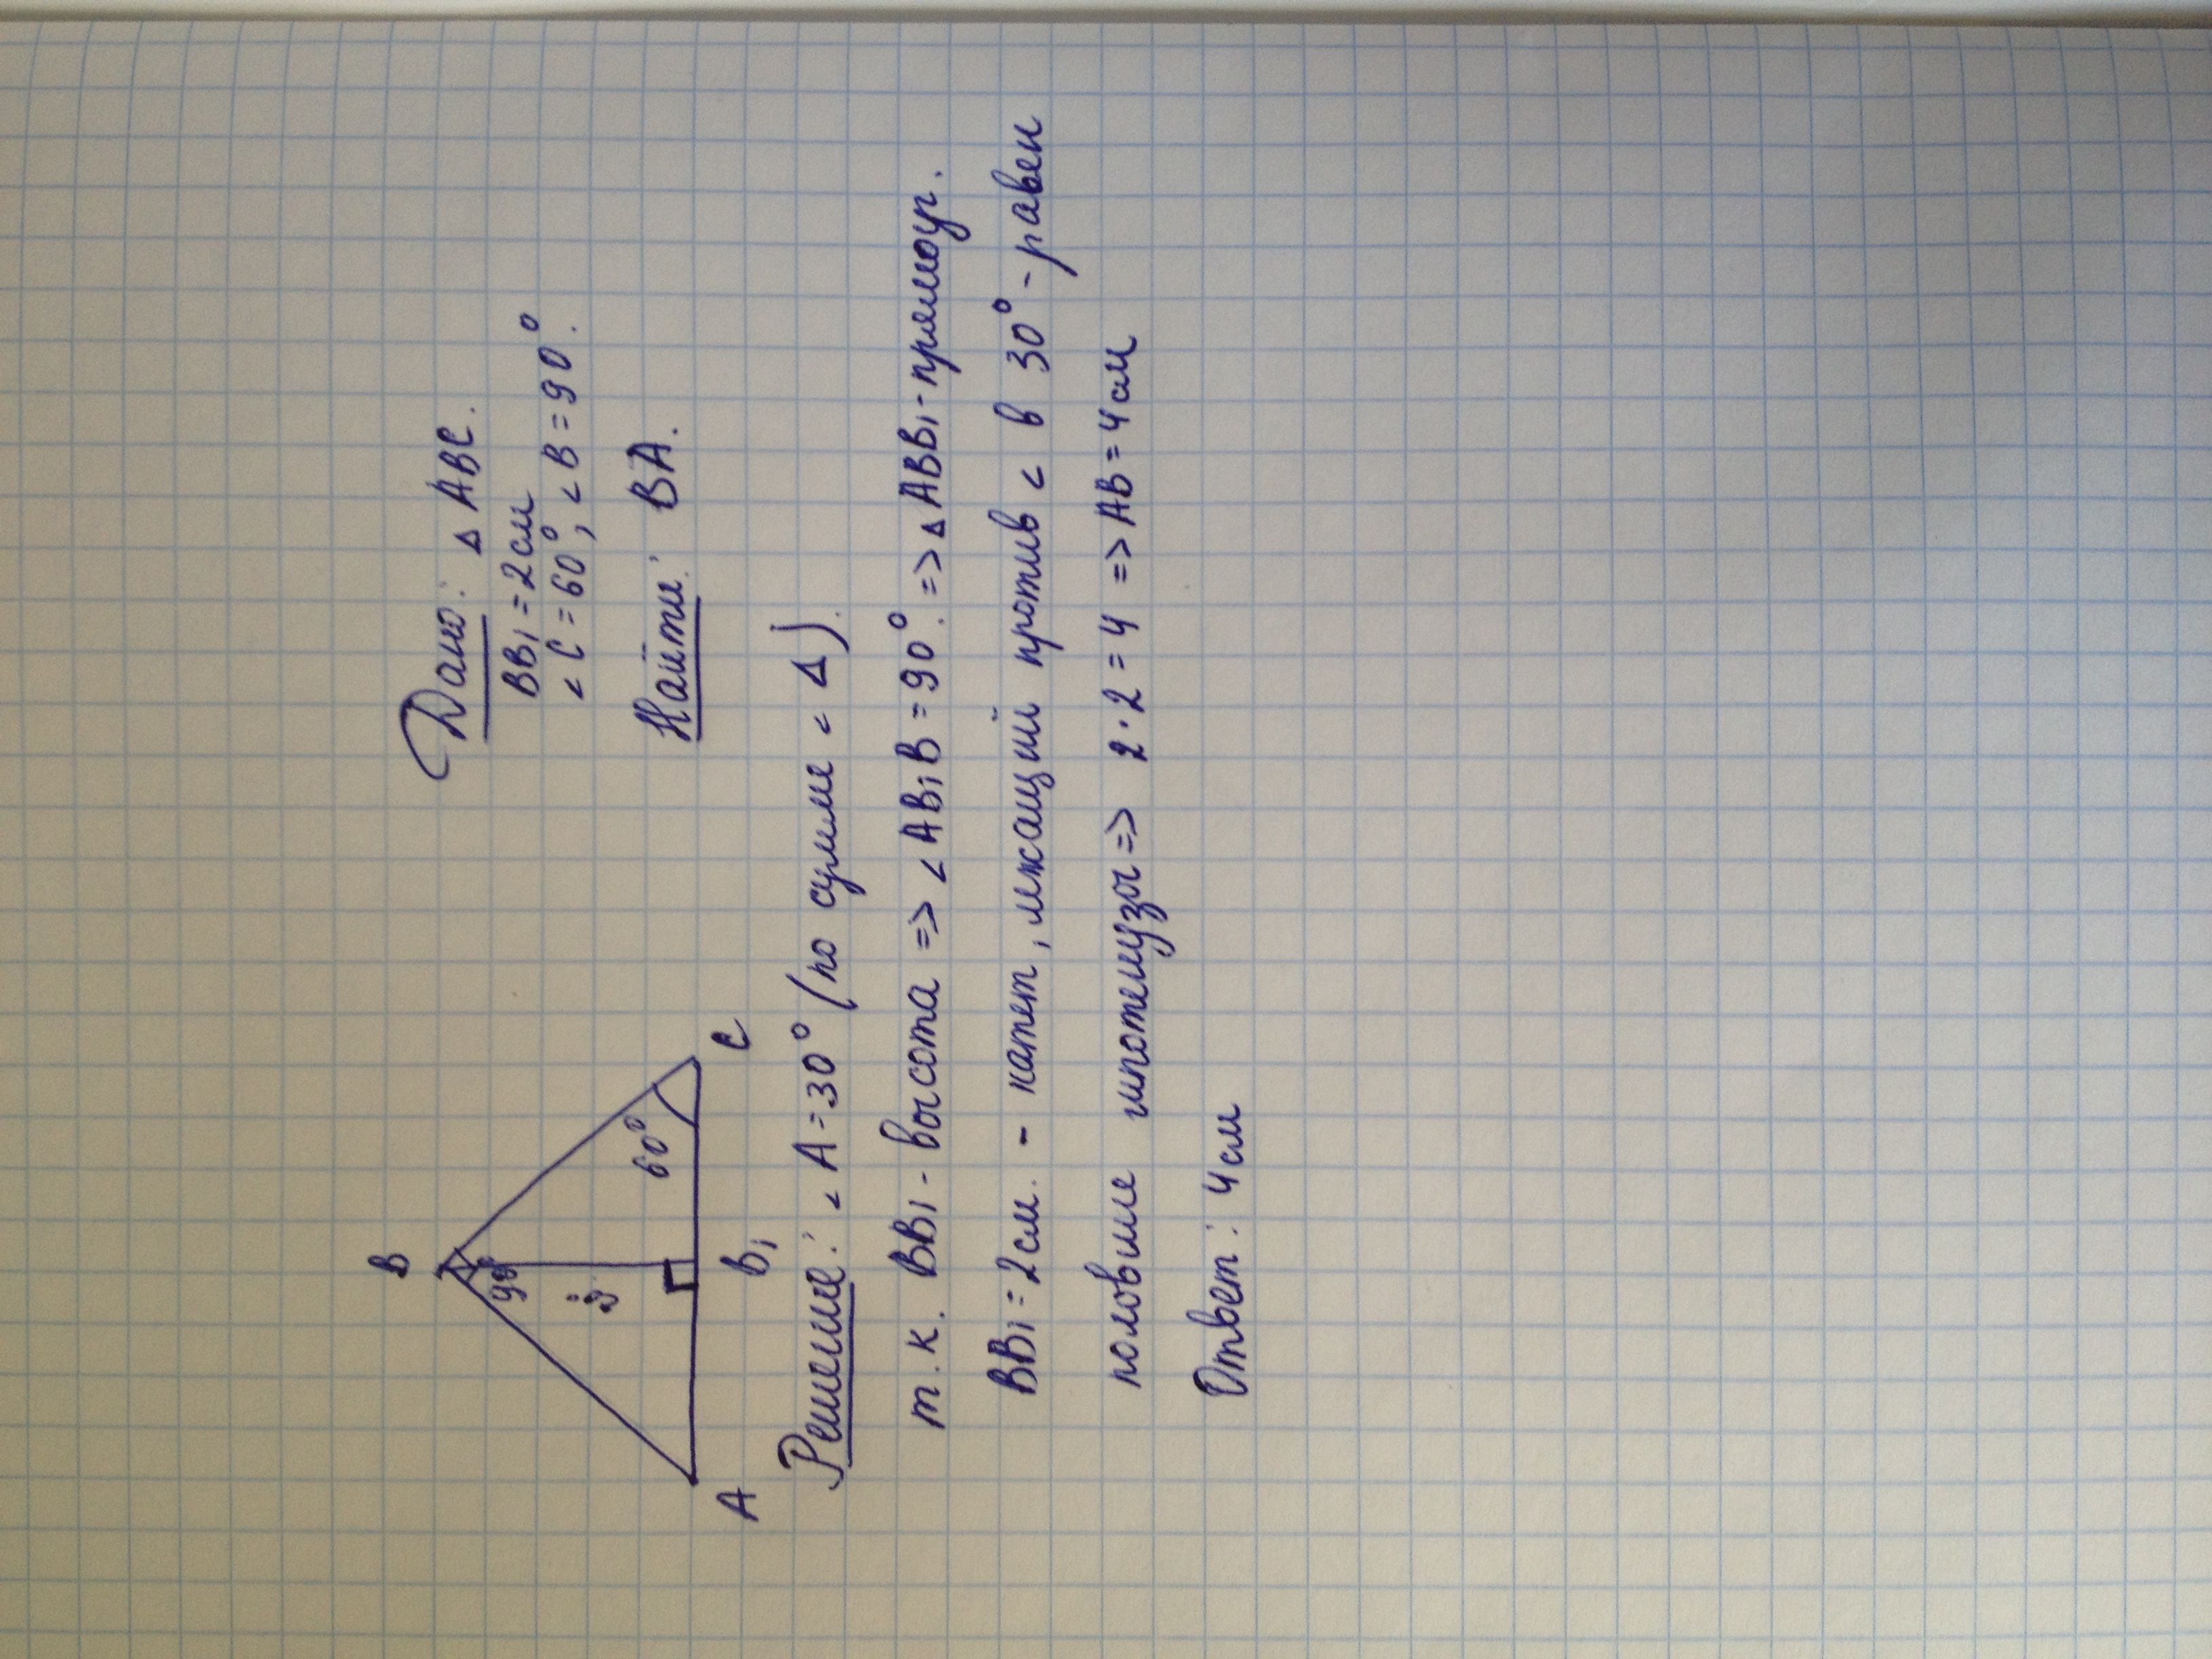 B
90°
60°
A
B₁
C
Дано: Δ ABC.
BB₁ = 2 см
< C = 60°, < B = 90°.
Найти: BA.
Решение: < A = 30° (по сумме < Δ).
т.к. BB₁ - высота => < AB₁B = 90°. => Δ ABB₁ - прямоуг.
BB₁ = 2 см. - катет, лежащий против < в 30° - равен
половине гипотенузы => 2 · 2 = 4 => AB = 4 см
Ответ: 4 см